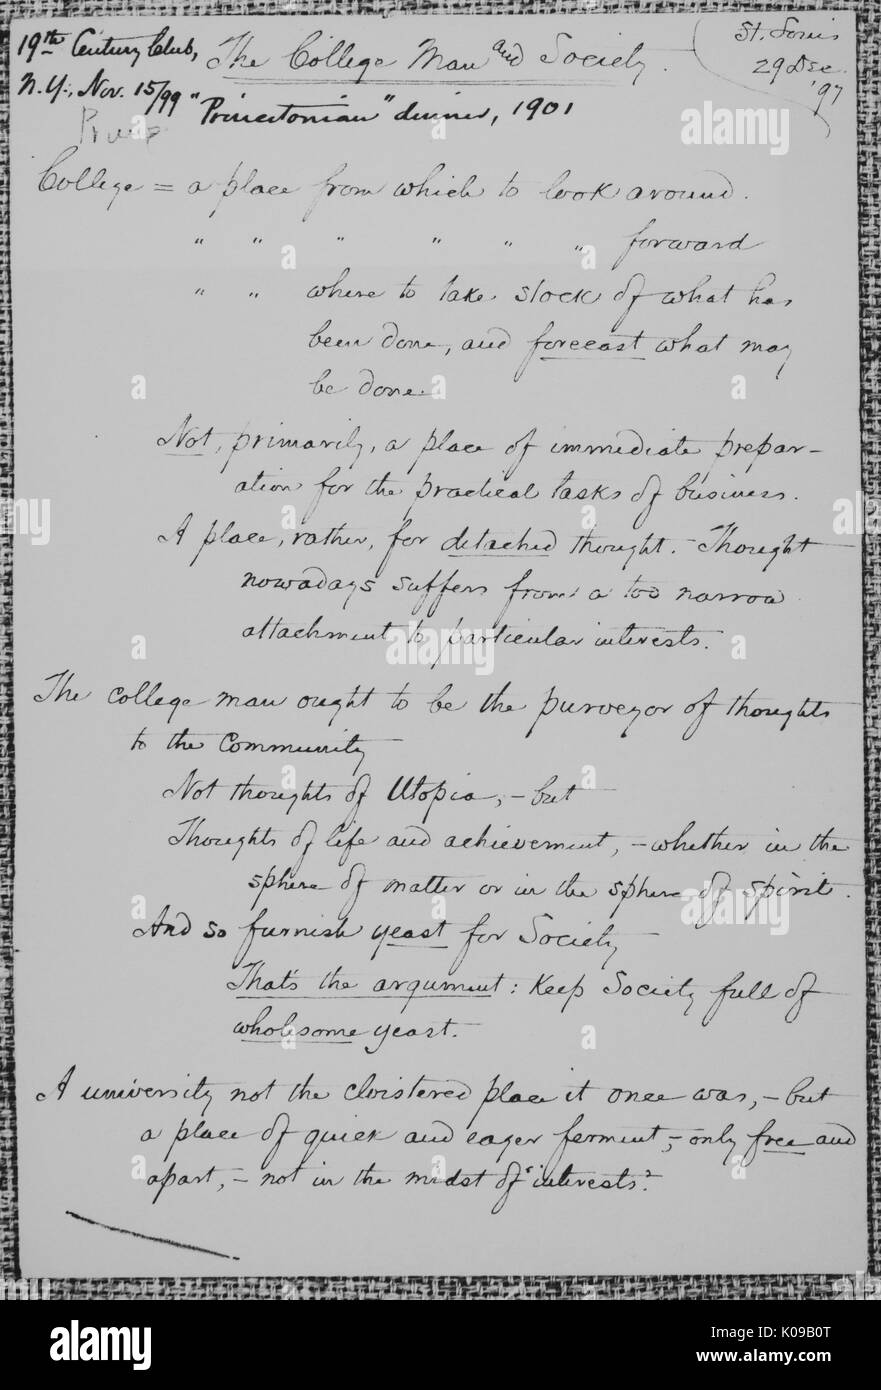 19th Century Club, The College Man and Society. St. Louis
29 Dec.
N.Y., Nov. 15/99 '97
"Princetonian" dinner, 1901
College = a place from which to look around.
" " " " " " forward
" " where to take stock of what has
been done, and forecast what may
be done.
Not, primarily, a place of immediate prepar-
ation for the practical tasks of business.
A place, rather, for detached thought. - Thought
nowadays suffers from a too narrow
attachment to particular interests.
The college man ought to be the purveyor of thoughts
to the community
Not thoughts of Utopia, - but
Thoughts of life and achievement, - whether in the
sphere of matter or in the sphere of spirit.
And so furnish yeast for Society
That's the argument: Keep Society full of
wholesome yeast.
A university not the cloistered place it once was, - but
a place of quick and eager ferment, - only free and
apart, - not in the midst of "interests".
alamy stock photo
alamy
K09B0T
www.alamy.com